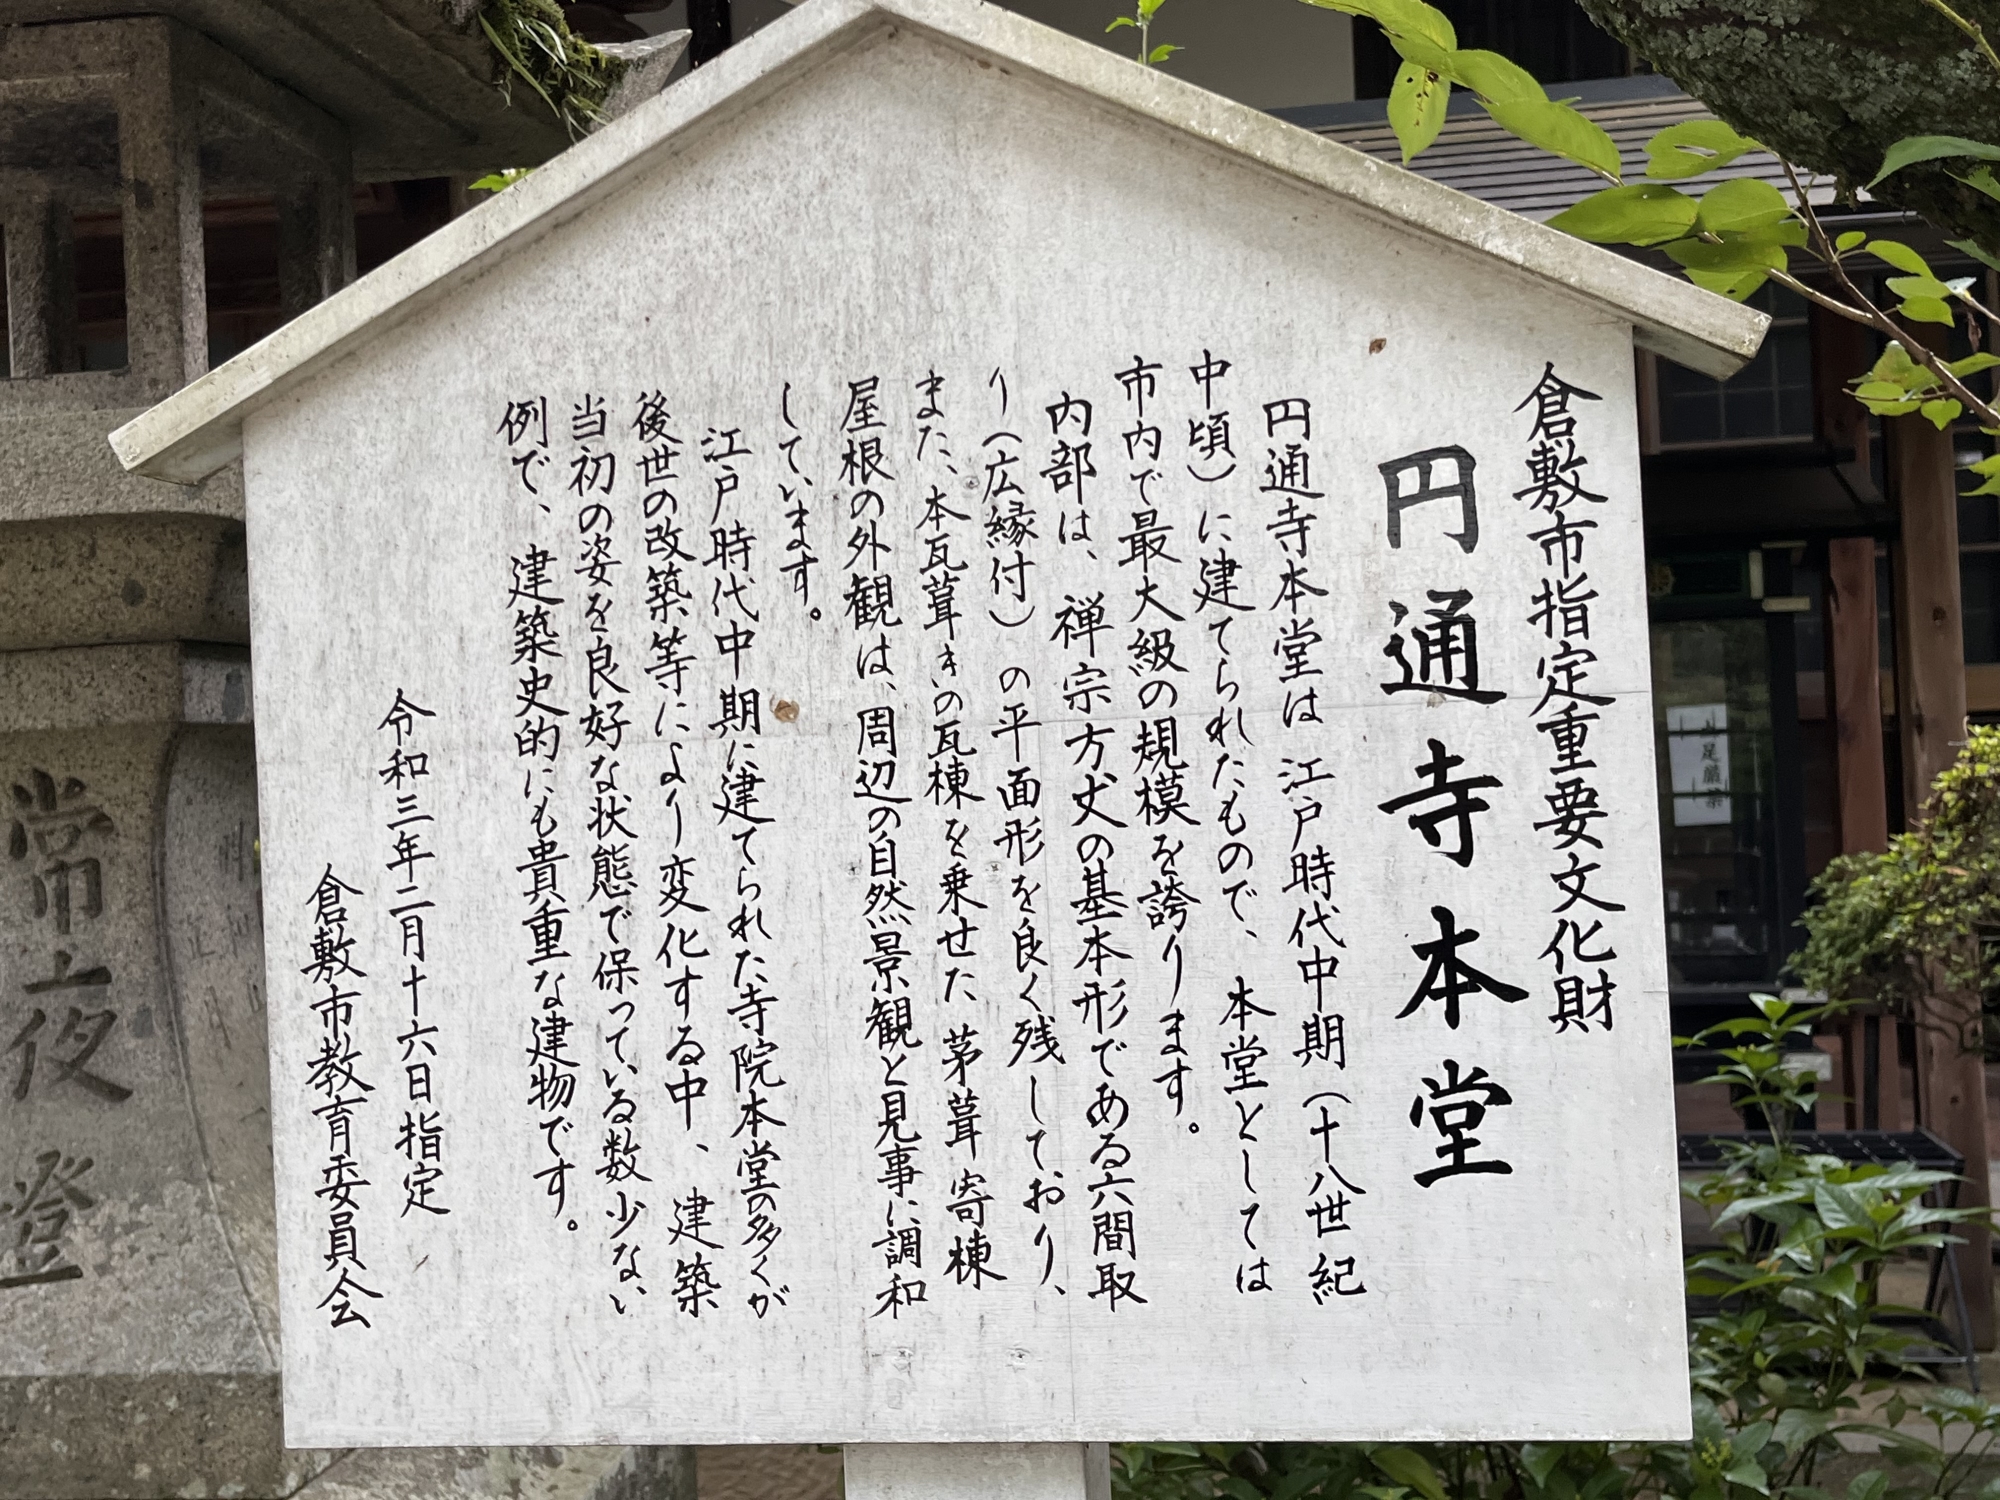 倉敷市指定重要文化財
円通寺本堂
円通寺本堂は江戸時代中期（十八世紀
中頃）に建てられたもので、本堂としては
市内で最大級の規模を誇ります。
内部は、禅宗方丈の基本形である六間取
り（広縁付）の平面形を良く残しており、
また、本瓦葺きの瓦棟を乗せた茅葺寄棟
屋根の外観は、周辺の自然景観と見事に調和
しています。
江戸時代中期に建てられた寺院本堂の多くが
後世の改築等により変化する中、建築
当初の姿を良好な状態で保っている数少ない
例で、建築史的にも貴重な建物です。
令和三年二月十六日指定
倉敷市教育委員会
常夜燈